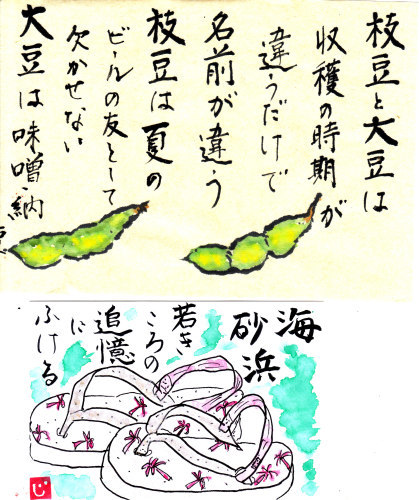 枝豆と大豆は
収穫の時期が
違うだけで
名前が違う
枝豆は夏の
ビールの友として
欠かせない
大豆は味噌・納
海
砂浜
若き
ころの
追憶
に
ふける
じ